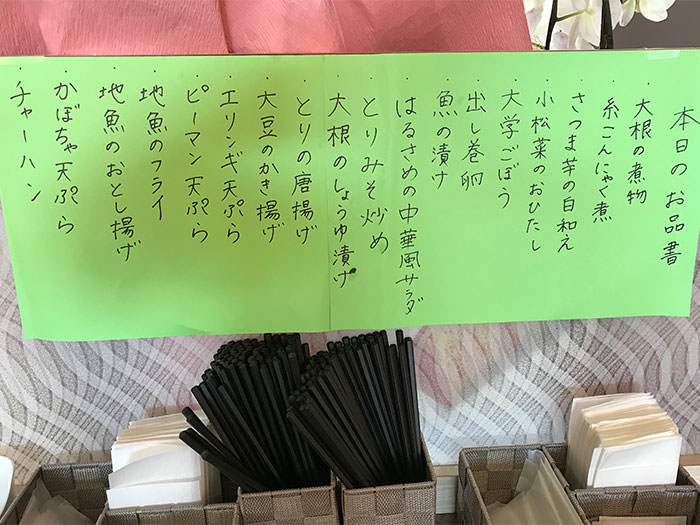 本日のお品書
・大根の煮物
・糸こんにゃく煮
・さつま芋の白和え
・小松菜のおひたし
・大学ごぼう
・出し巻卵
・魚の漬け
・はるさめの中華風サラダ
・とりみそ炒め
・大根のしょうゆ漬け
・とりの唐揚げ
・大豆のかき揚げ
・エリンギ天ぷら
・ピーマン天ぷら
・地魚のフライ
・地魚のおとし揚げ
・かぼちゃ天ぷら
・チャーハン